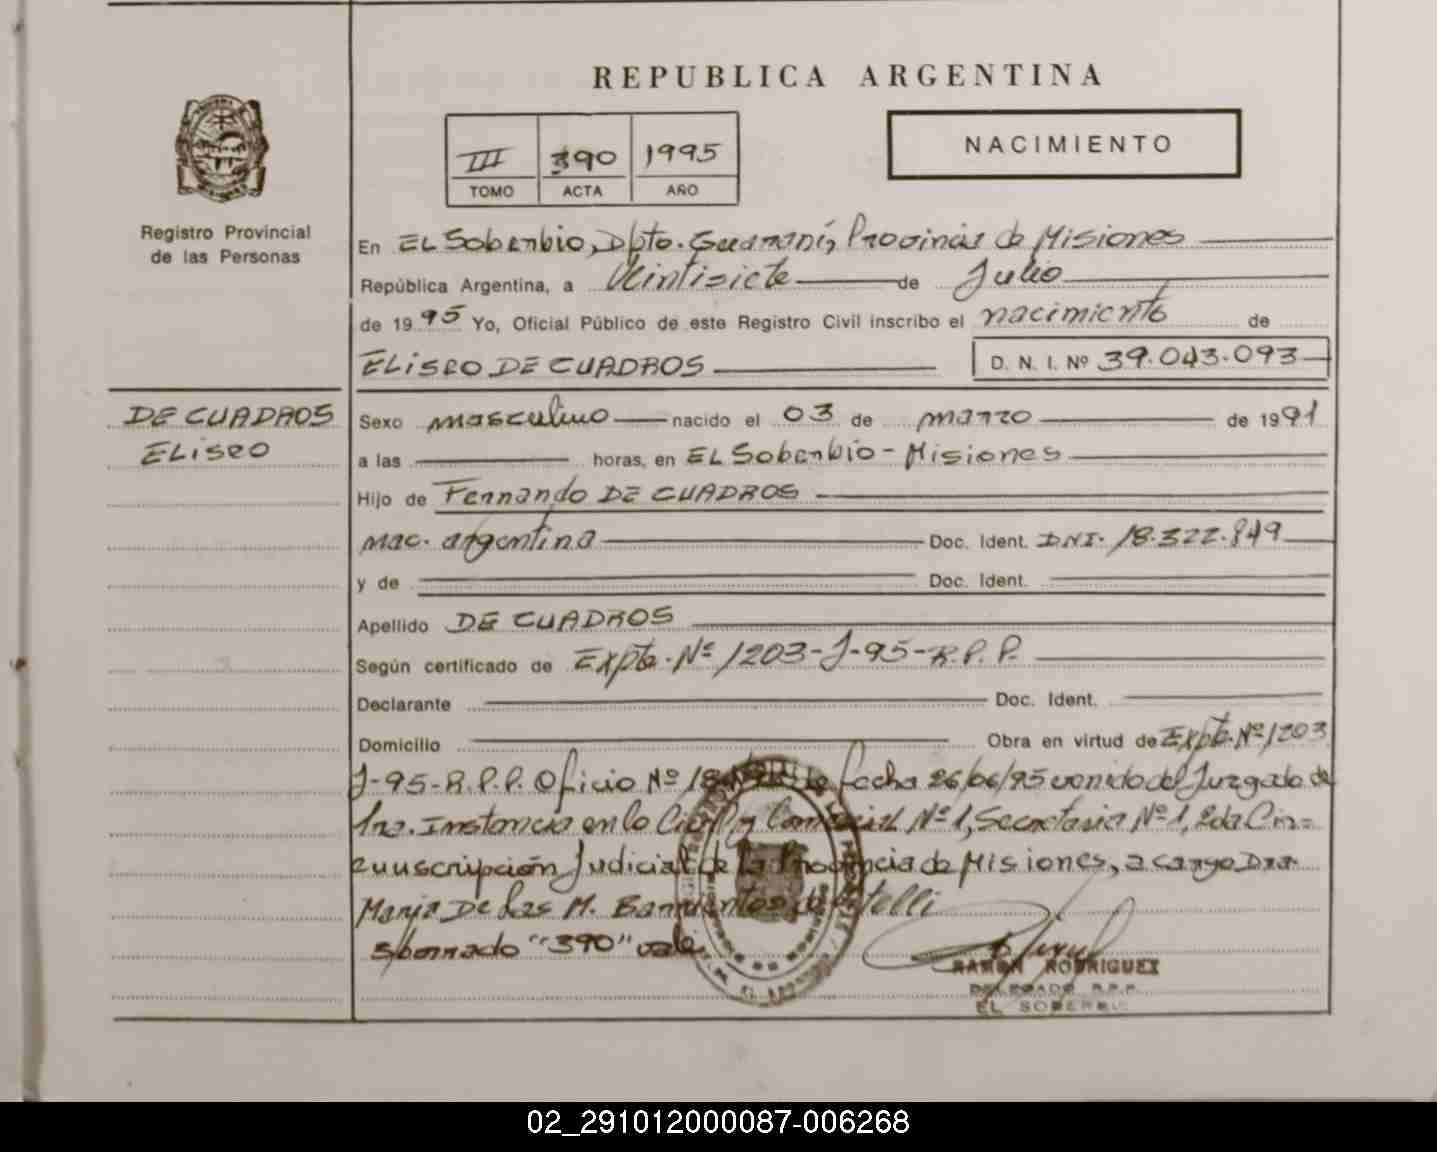 REPUBLICA ARGENTINA
III 390 1995
TOMO ACTA AÑO
NACIMIENTO
Registro Provincial
de las Personas
En EL Soberbio, Dpto. Guaraní, Provincia de Misiones
República Argentina, a Veintisiete de Julio
de 1995 Yo, Oficial Público de este Registro Civil inscribo el nacimiento de
ELISEO DE CUADROS D. N. I. Nº 39.043.093
DE CUADROS
ELISEO
Sexo masculino nacido el 03 de marzo de 1991
a las horas, en EL Soberbio - Misiones
Hijo de Fernando DE CUADROS
nac. argentina Doc. Ident. DNI. 18.322.849
y de Doc. Ident.
Apellido DE CUADROS
Según certificado de Expte. Nº 1203-J-95-R.P.P.
Declarante Doc. Ident.
Domicilio Obra en virtud de Expte. Nº 1203
J-95-R.P.P. Oficio Nº de fecha 26/06/95 venido del Juzgado de
1ra. Instancia en lo Civil y Comercial Nº 1, Secretaria Nº 1, 2da Cir=
cunscripción Judicial de la Provincia de Misiones, a cargo Dra.
Maria De Las M. Barrientos de
Sborrado "390" vale
RAMON RODRIGUEZ
DELEGADO R.P.P.
EL SOBERBIO
02_291012000087-006268